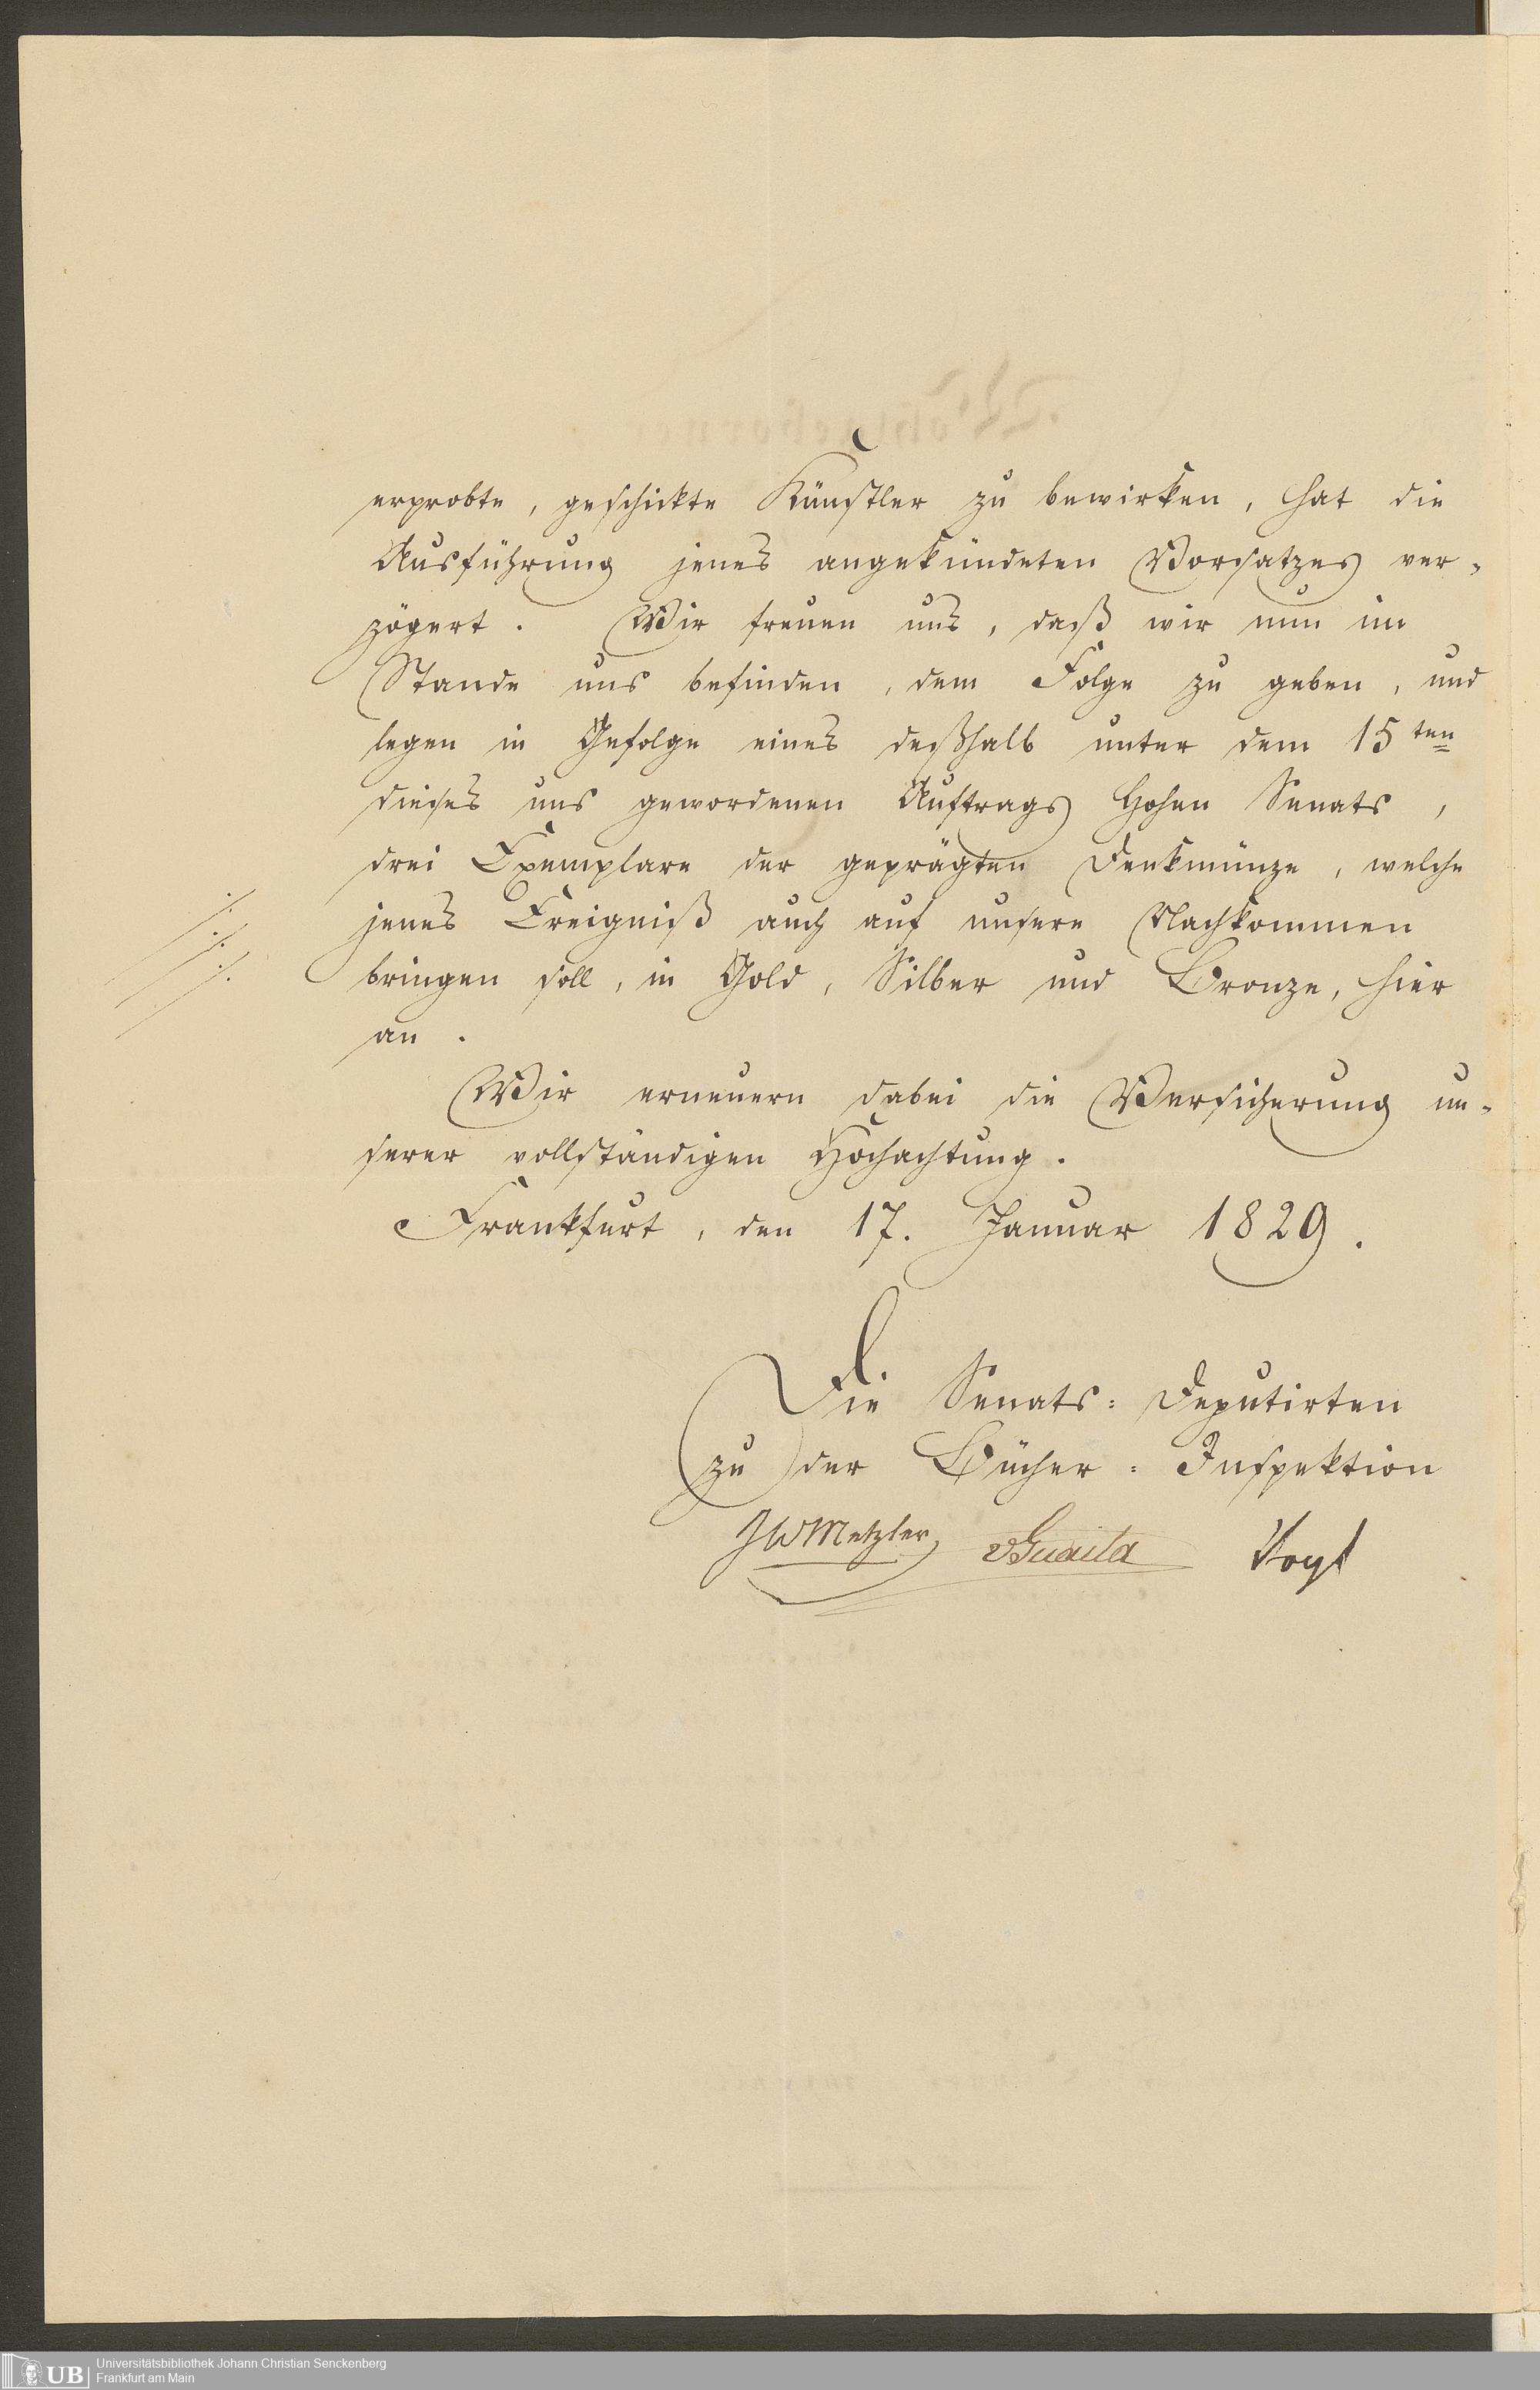 erprobte, geschickte Künstler zu bewirken, hat die
Ausführung jenes angekündeten Vorsatzes ver-
zögert. Wir freuen uns, daß wir nun im
Stande uns befinden, dem Folge zu geben, und
legen in Gefolge eines deßhalb unter dem 15ten
dieses uns gewordenen Auftrags Hohen Senats,
drei Exemplare der geprägten Denkmünze, welche
jenes Ereigniß auch auf unsere Nachkommen
bringen soll, in Gold, Silber und Bronze, hier
an.
Wir erneuern dabei die Versicherung un-
serer vollständigen Hochachtung.
Frankfurt, den 17. Januar 1829.
Die Senats=Deputirten
zu der Bücher=Inspektion
JWMetzler vGuaita Vogt
UB Universitätsbibliothek Johann Christian Senckenberg
Frankfurt am Main